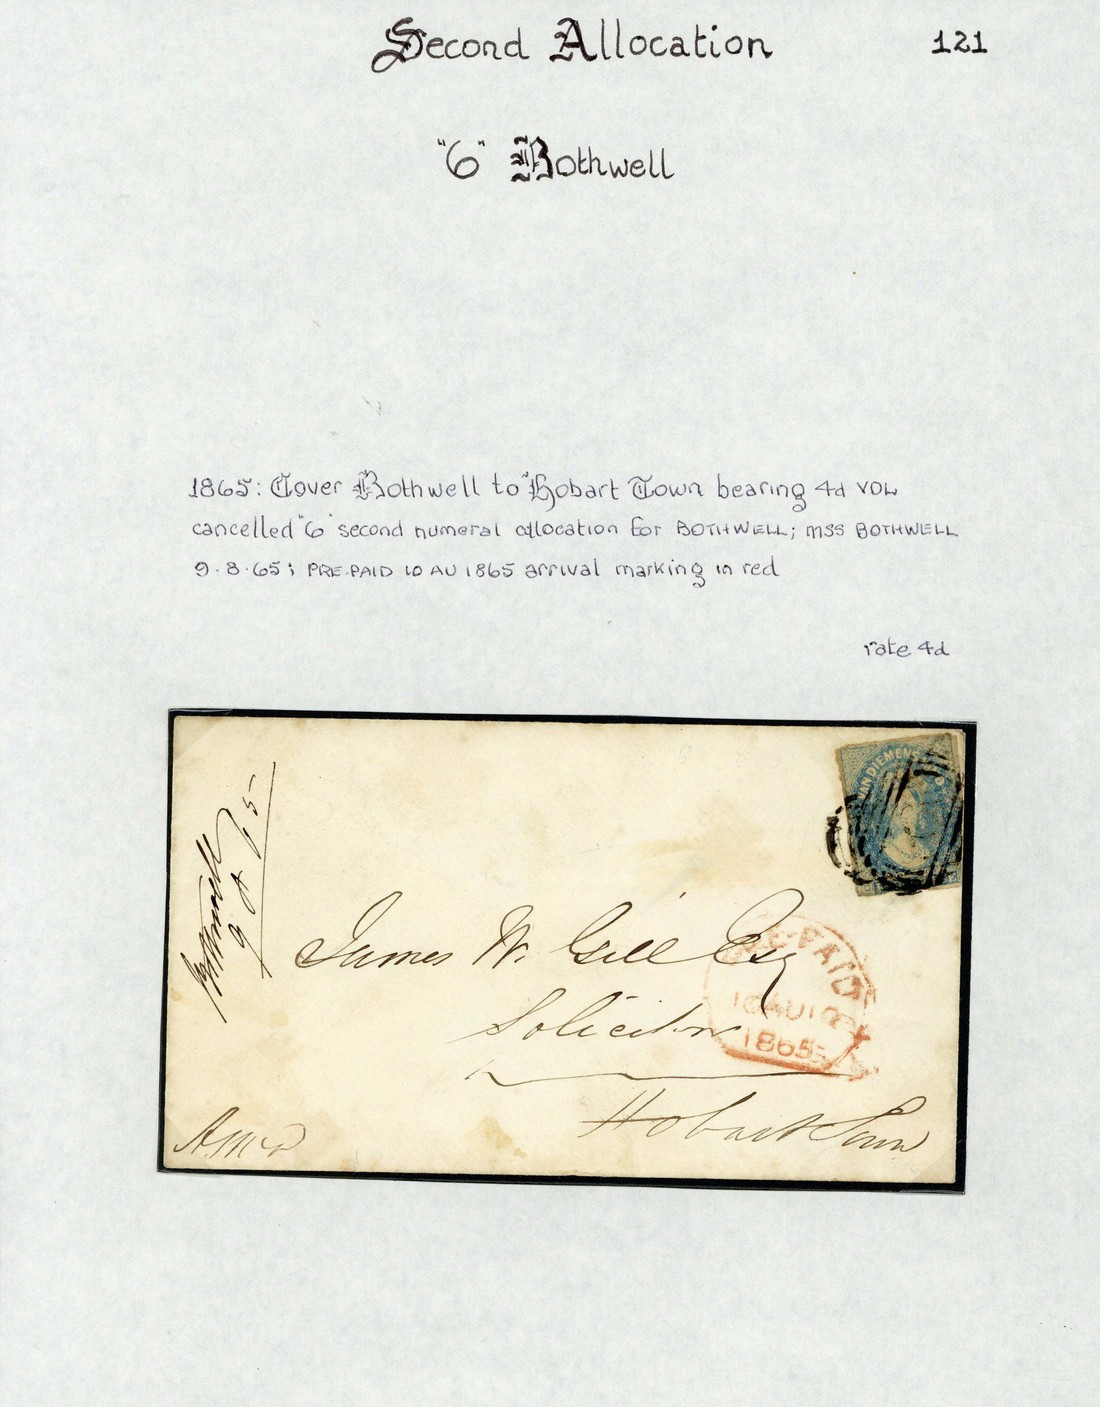 Second Allocation
121
"6" Bothwell
1865: Cover Bothwell to Hobart Town bearing 4d VDL
cancelled "6" second numeral allocation for BOTHWELL; MSS BOTHWELL
9.8.65; PRE-PAID 10 AU 1865 arrival marking in red
rate 4d
VAN DIEMENS
Bothwell
9 8 65
James W. Gill Esq
PRE-PAID
10 AU 10
1865
Solicitor
Hobart Town